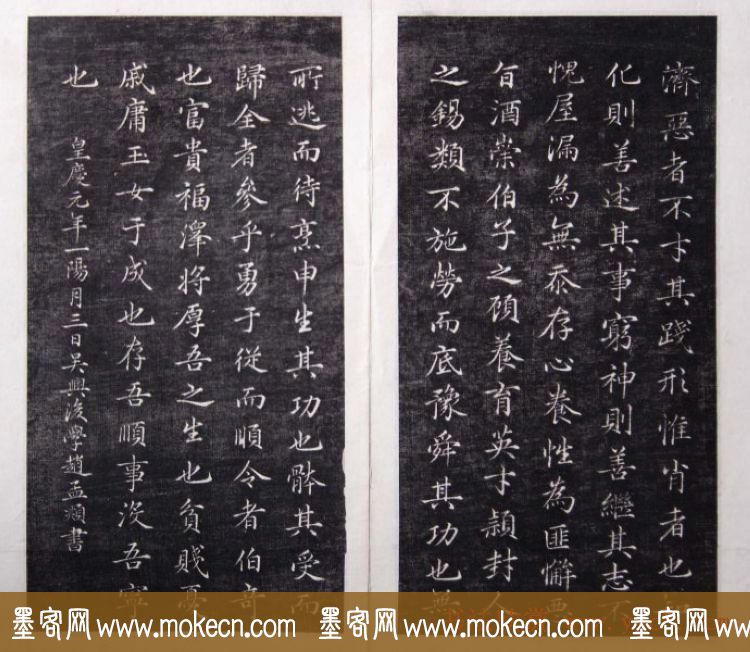 濟惡者不才其踐形惟肖者也知
化則善述其事窮神則善繼其志不
愧屋漏為無忝存心養性為匪懈惡
旨酒崇伯子之顧養育英才穎封人
之錫類不施勞而底豫舜其功也無
所逃而待烹申生其功也骵其受而
歸全者參乎勇于從而順令者伯奇
也富貴福澤将厚吾之生也貧賤憂
戚庸玉女于成也存吾順事没吾寧
也
皇慶元年一陽月三日吴興後學趙孟頫書
墨客网 www.mokecn.com 墨客网 www.mokecn.com 墨客网 www.mokecn.com